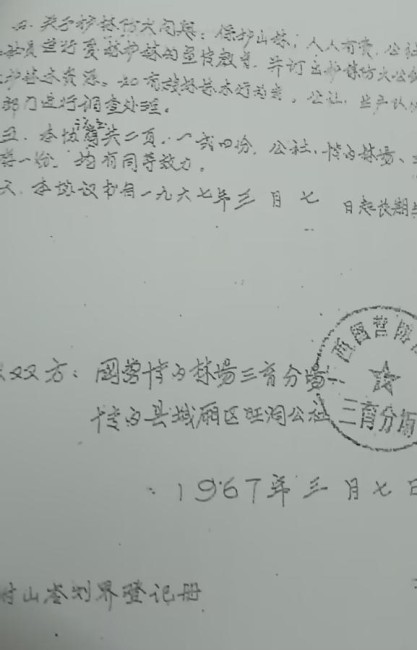 四、关于护林防火问题：保护山林，人人有责，公社
进行爱林护林的宣传教育，并订出护林防火公
护林木责任。如有破坏林木行为者，公社、生产队
部门进行调查处理。
五、本协议书共二页，一式四份，公社、博白林场、
一份，均有同等效力。
六、本协议书自一九六七年三月七日起长期
双方：国营博白林场三育分场
博白县城厢区旺洞公社
国营博
三育分场
1967年三月七日
山岺划界登记册